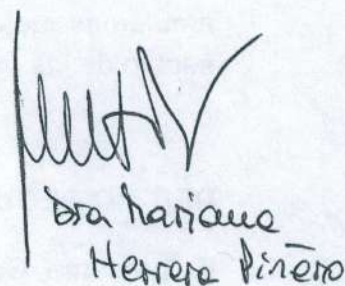 Dra Mariana
Herrera Piñero